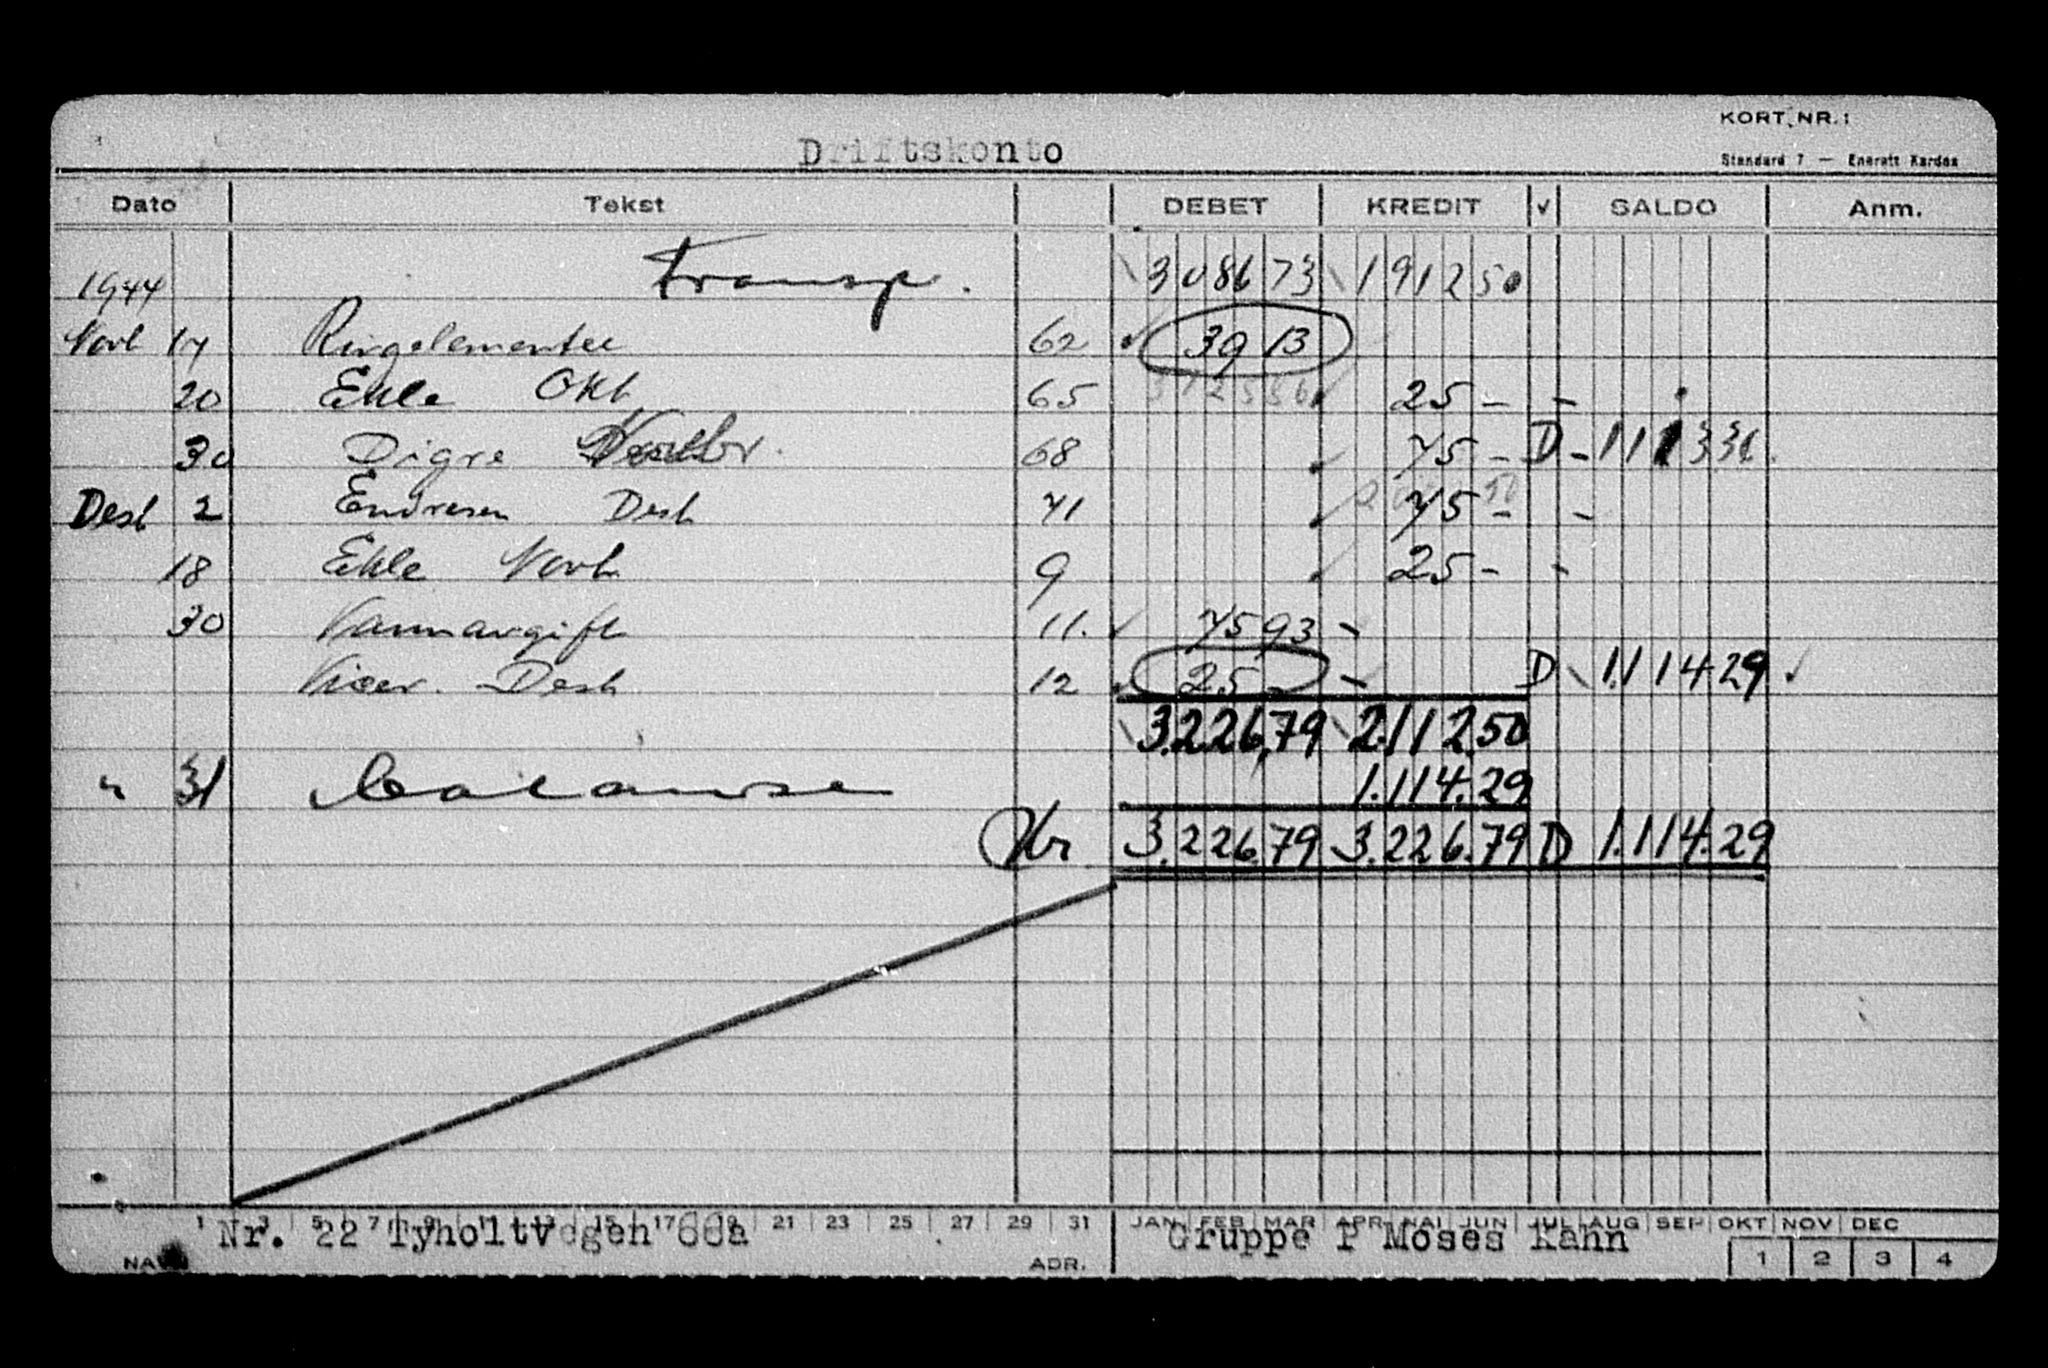 KORT NR.:
Driftskonto
Standard 7 — Enerett Kardex
Dato Tekst DEBET KREDIT √ SALDO Anm.
1944 Transp. 3086 73 1912 50
Novb 17 Ringelementer 62 39 13
20 Ekle Okt 65 3125 86 25 -
30 Digre Novbr. 68 75 - D 1113 36
Desb 2 Endresen Desb 71 75 -
18 Ekle Novb 9 25 -
30 Vannavgift 11. 75 93
Vicev. Desb 12 25 - D 1.114 29
3.226,79 2.112.50
" 31 balanse 1.114.29
Kr 3.226.79 3.226.79 D 1.114.29
1 3 5 7 9 11 13 15 17 19 21 23 25 27 29 31 JAN FEB MAR APR MAI JUN JUL AUG SEP OKT NOV DEC
Nr. 22 Tyholtvegen 66a Gruppe P Moses Kahn
NAVN ADR. 1 2 3 4